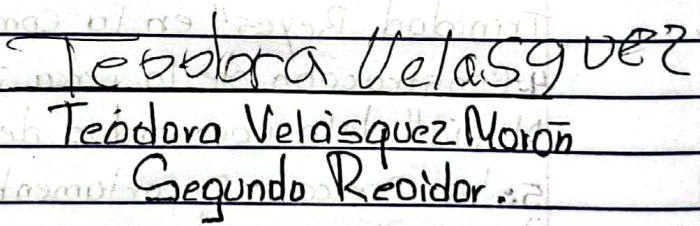 Teodora Velasquez
Teódora Velásquez Morón
Segundo Regidor.